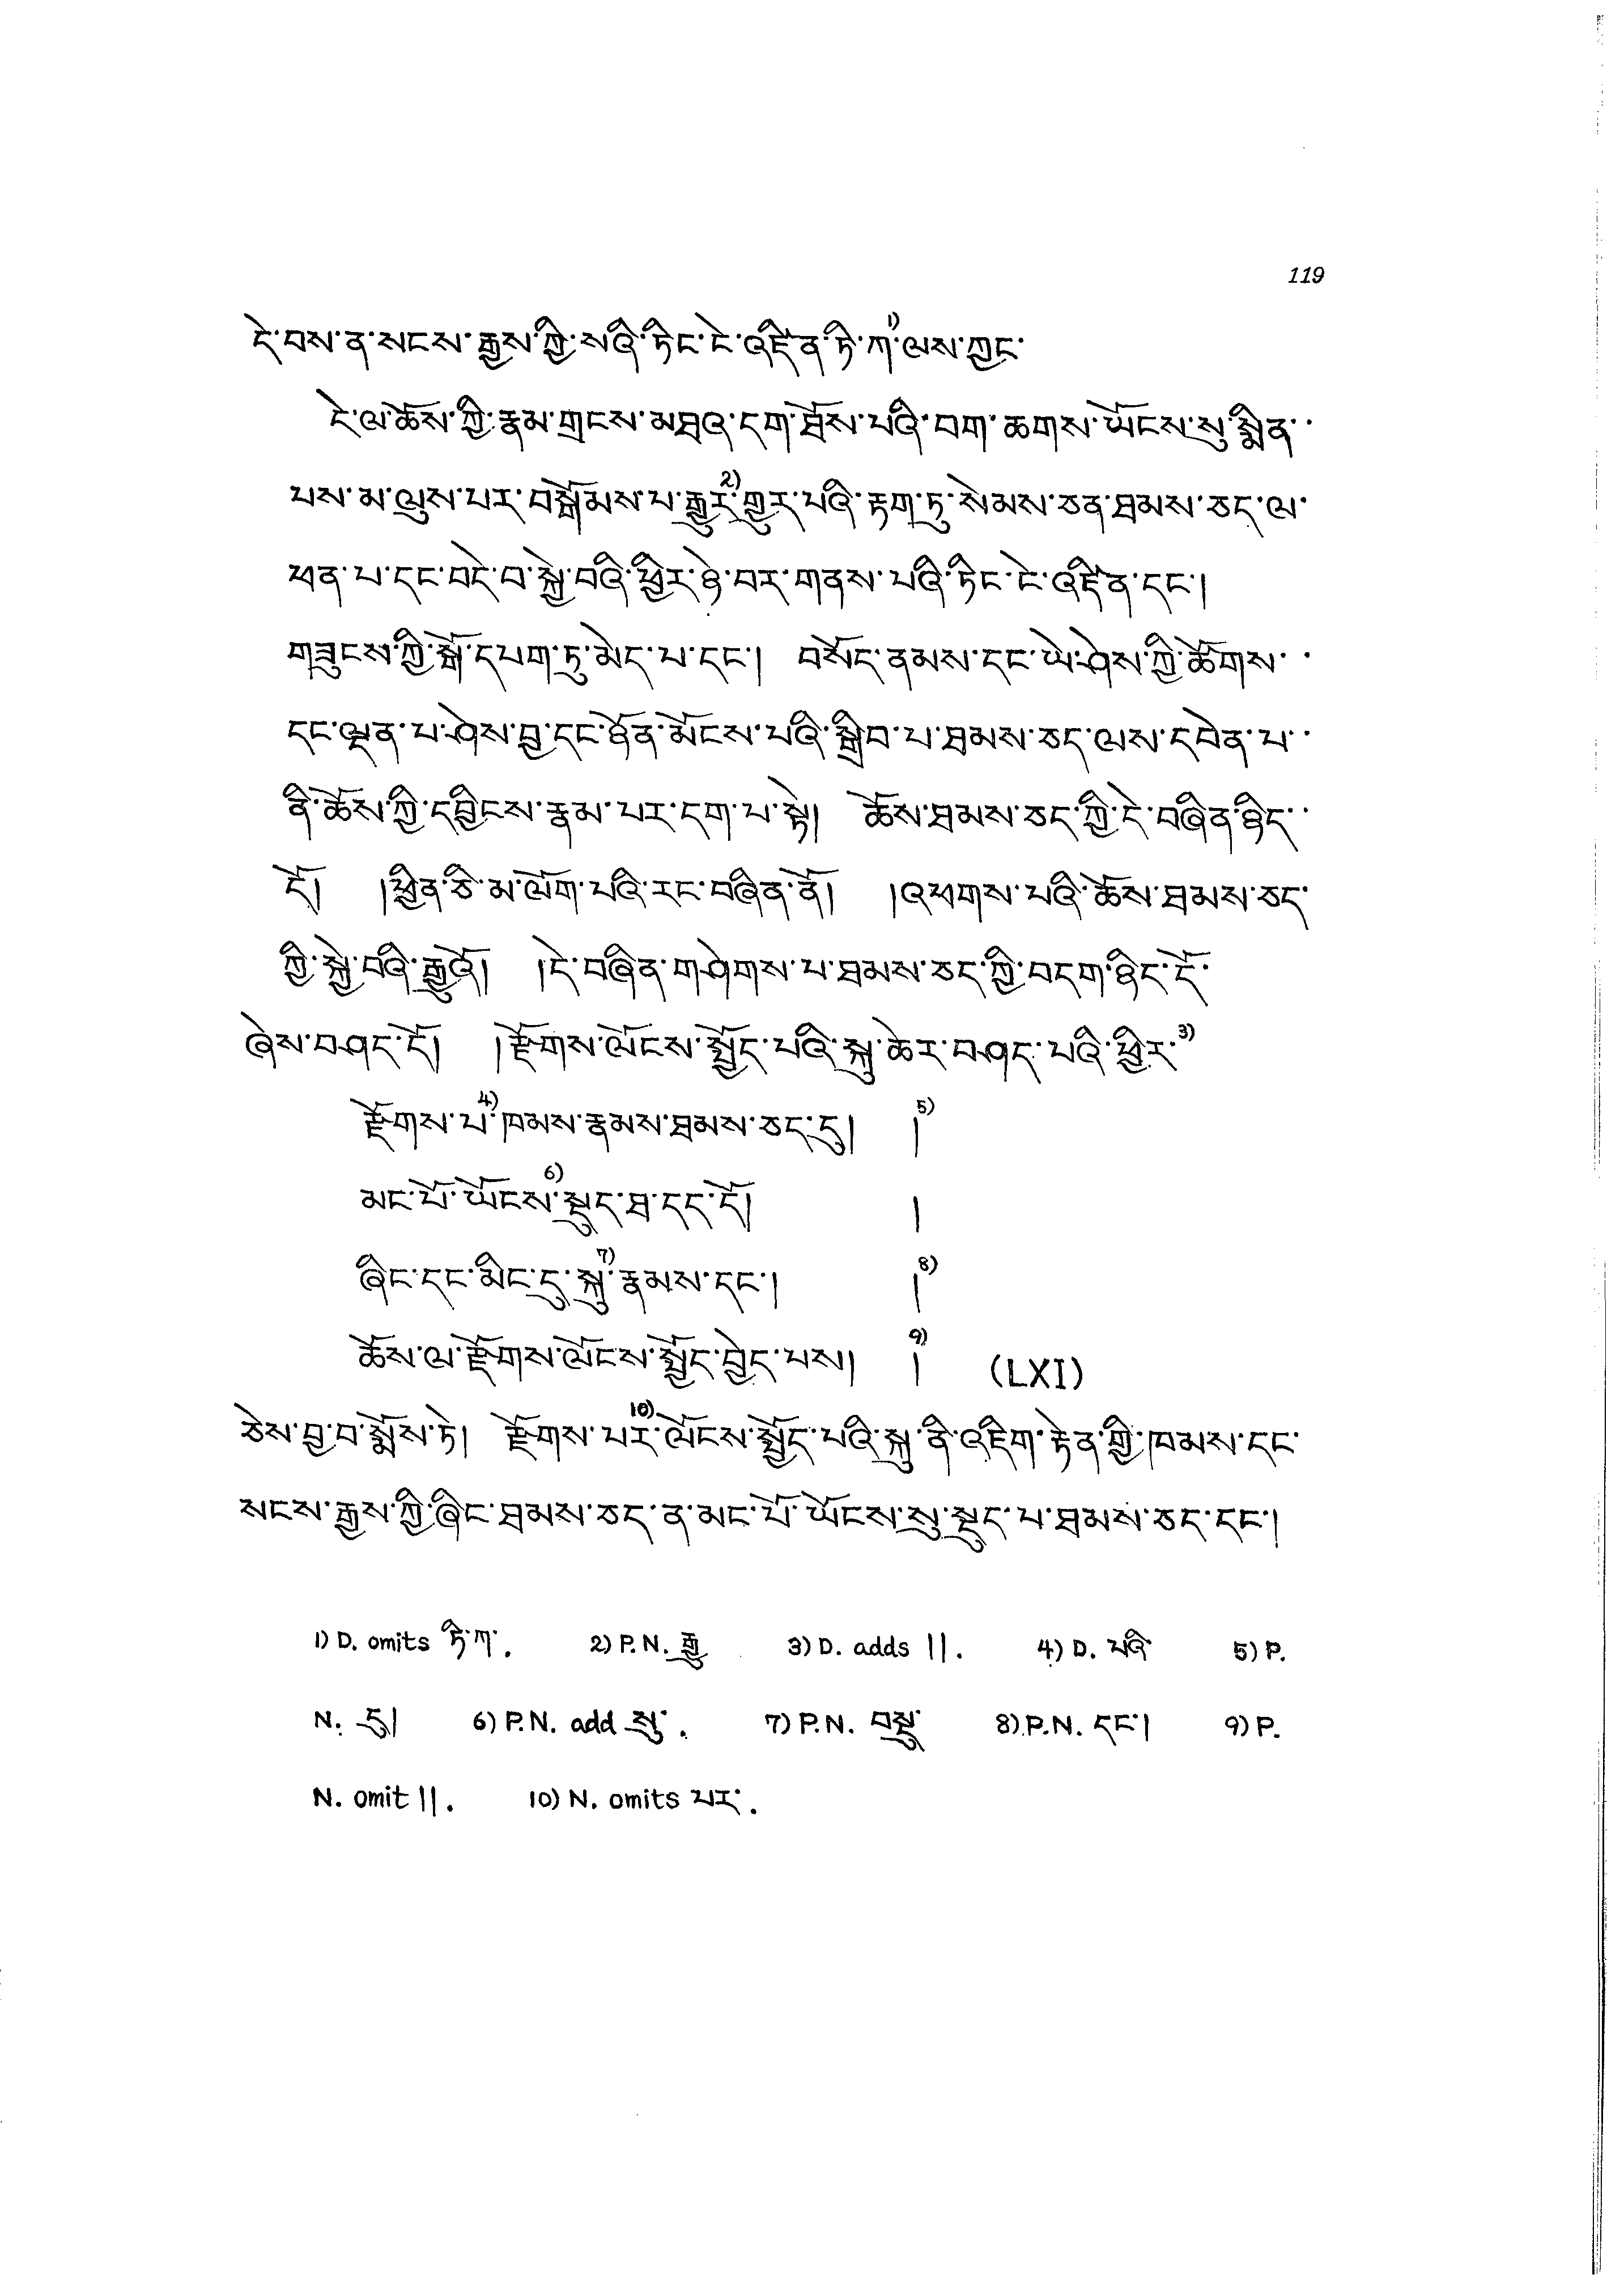 119
དེ་བས་ན་སངས་རྒྱས་ཀྱི་སའི་ཏིང་ངེ་འཛིན་ཏི་ཀ་1)ལས་ཀྱང་
དེ་ལ་ཆོས་ཀྱི་རྣམ་གྲངས་མཐའ་དག་ཐོས་པའི་བག་ཆགས་ཡོངས་སུ་སྨིན་་
པས་མ་ལུས་པར་བསྒོམས་པ་རྒྱུར་2)གྱུར་པའི་རྟག་ཏུ་སེམས་ཅན་ཐམས་ཅད་ལ་
ཕན་པ་དང་བདེ་བ་སྐྱེ་བའི་ཕྱིར་ཉེ་བར་གནས་པའི་ཏིང་ངེ་འཛིན་དང་།
གཟུངས་ཀྱི་སྒོ་དཔག་ཏུ་མེད་པ་དང་། བསོད་ནམས་དང་ཡེ་ཤེས་ཀྱི་ཚོགས་་
དང་ལྡན་པ་ཤེས་བྱ་དང་ཉོན་མོངས་པའི་སྒྲིབ་པ་ཐམས་ཅད་ལས་དབེན་པ་་
ནི་ཆོས་ཀྱི་དབྱིངས་རྣམ་པར་དག་པ་སྟེ། ཆོས་ཐམས་ཅད་ཀྱི་དེ་བཞིན་ཉིད་་
དོ། །ཕྱིན་ཅི་མ་ལོག་པའི་རང་བཞིན་ནོ། །འཕགས་པའི་ཆོས་ཐམས་ཅད་
ཀྱི་སྐྱེ་བའི་རྒྱུའོ། །དེ་བཞིན་གཤེགས་པ་ཐམས་ཅད་ཀྱི་བདག་ཉིད་དོ་
ཞེས་བཤད་དོ། །རྫོགས་ལོངས་སྤྱོད་པའི་སྐུ་ཆེར་བཤད་པའི་ཕྱིར་3)
རྫོགས་པ་4)ཁམས་རྣམས་ཐམས་ཅད་དུ། །5)
མང་པོ་ཡོངས་6)སྡུད་ཐ་དད་དོ། །
ཞིང་དང་མིང་དུ་སྐུ་7)རྣམས་དང་། །8)
ཆོས་ལ་རྫོགས་ལོངས་སྤྱོད་བྱེད་པས། །9) (LXI)
ཅེས་བྱ་བ་སྨོས་ཏེ། རྫོགས་པར་10)ལོངས་སྤྱོད་པའི་སྐུ་ནི་འཇིག་རྟེན་གྱི་ཁམས་དང་
སངས་རྒྱས་ཀྱི་ཞིང་ཐམས་ཅད་ན་མང་པོ་ཡོངས་སུ་སྡུད་པ་ཐམས་ཅད་དང་།
1) D. omits ཏི་ཀ་. 2) P.N. རྒྱུ 3) D. adds ||. 4) D. པའི་ 5) P.
N. དུ། 6) P.N. add སུ་. 7) P.N. བསྡུ་ 8) P.N. དང་། 9) P.
N. omit ||. 10) N. omits པར་.